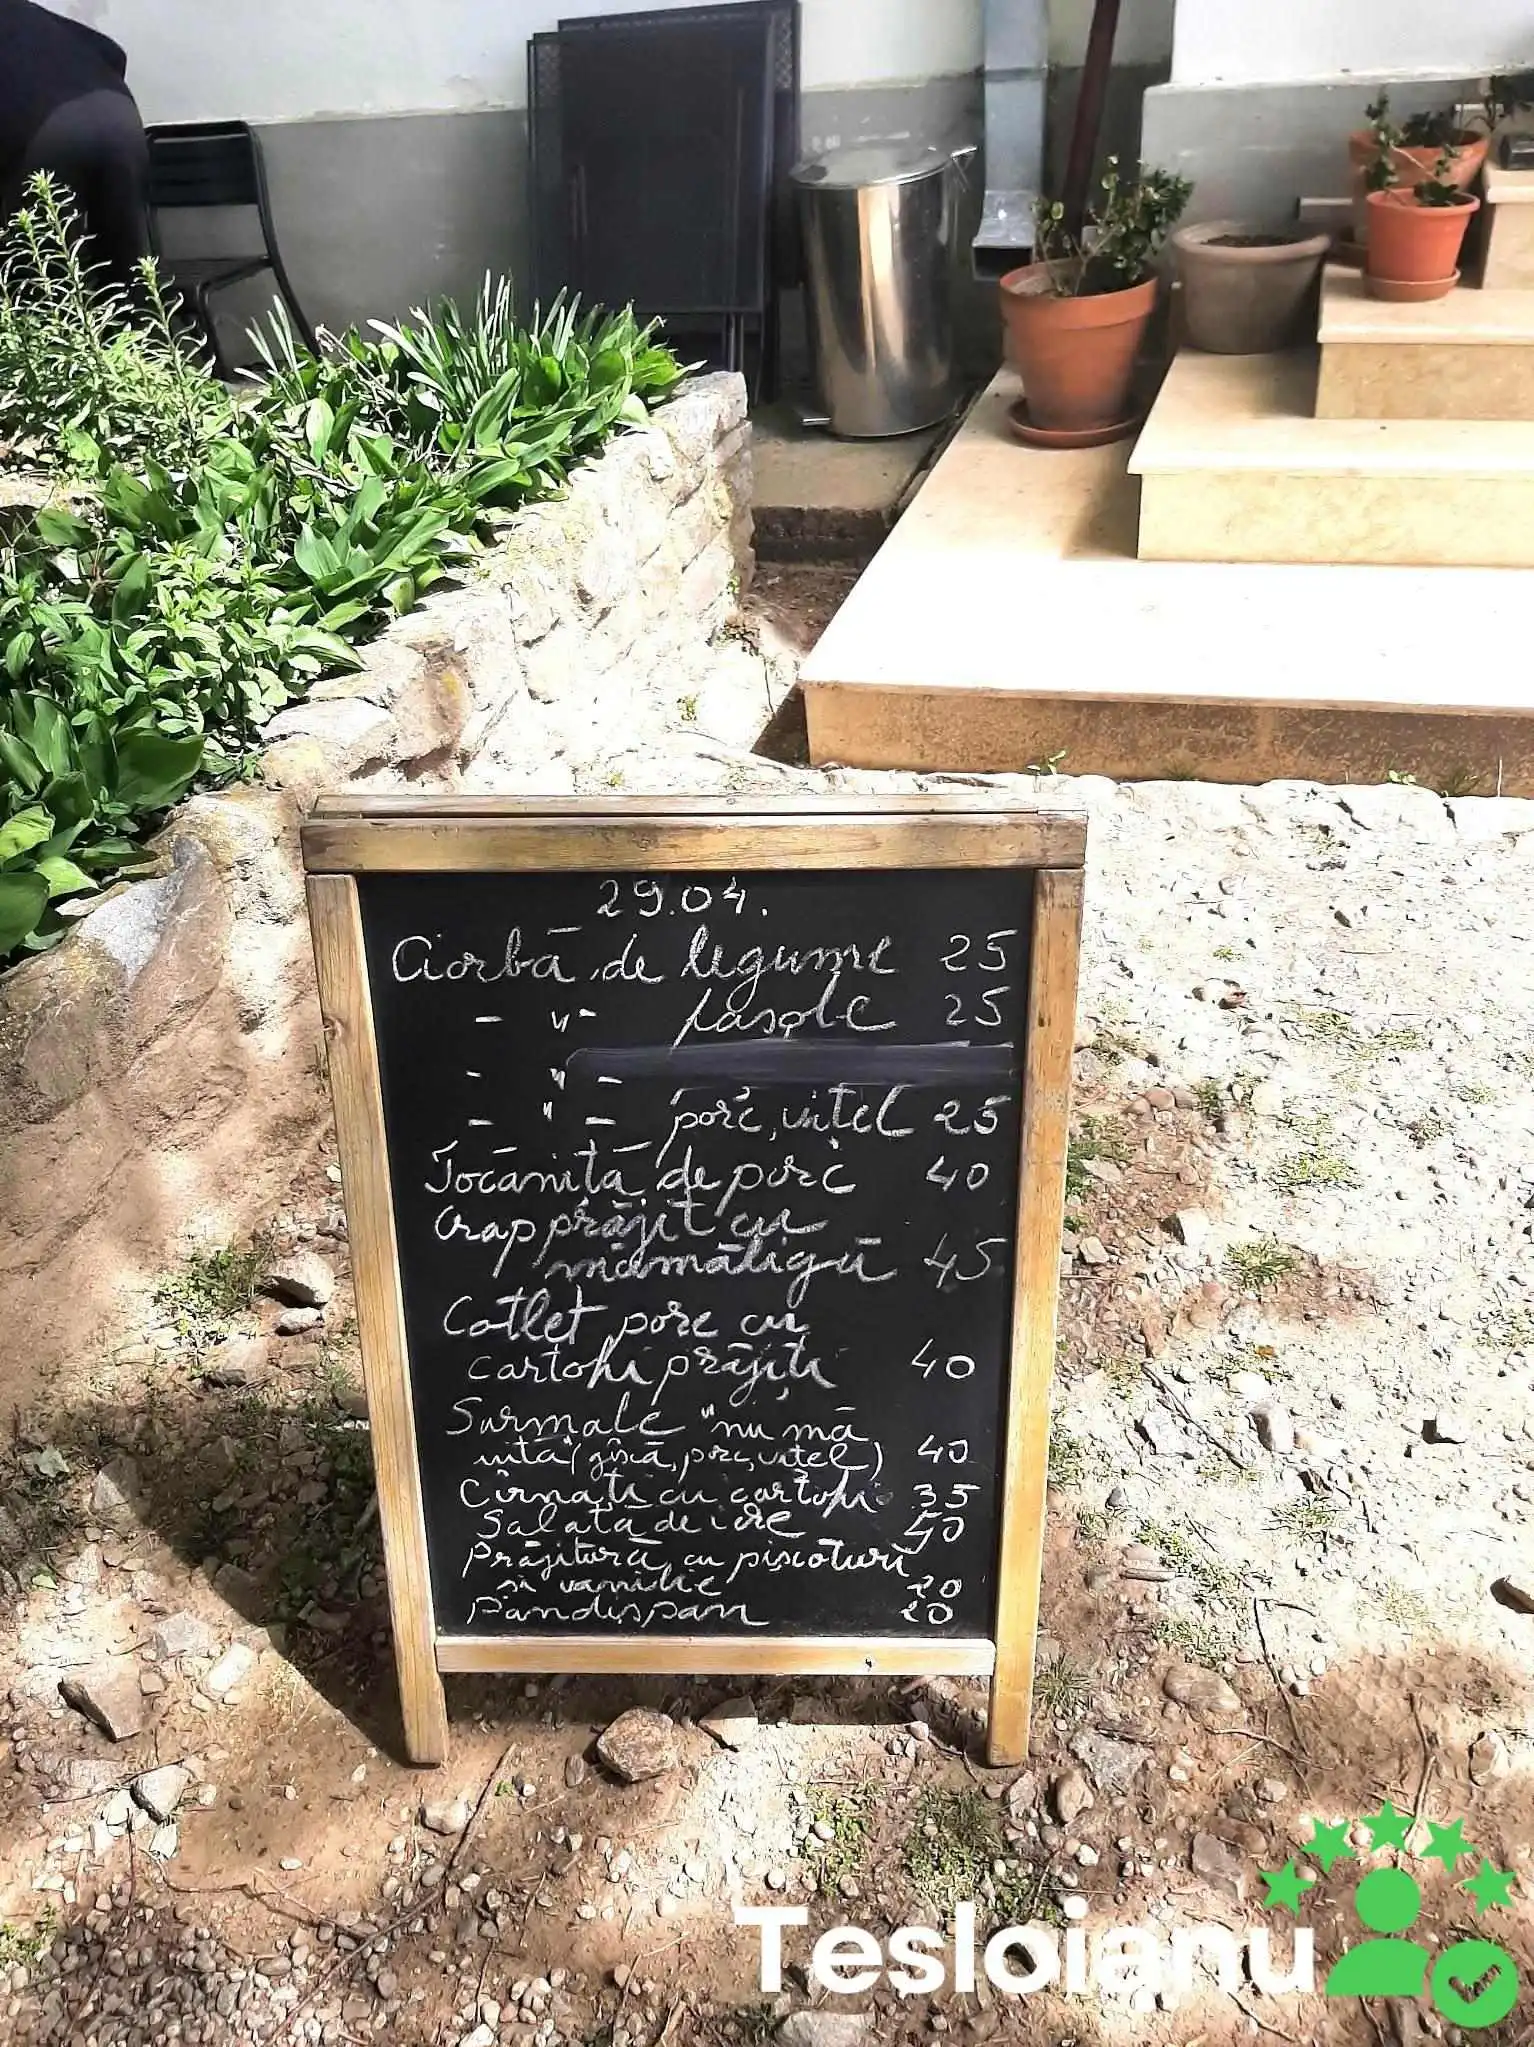 29.04.
Ciorbă de legume 25
- " - fasole 25
- " -
- " - porc, vițel 25
Tocăniță de porc 40
Crap prăjit cu
mămăligă 45
Cotlet porc cu
cartofi prăjiți 40
Sarmale "nu mă
uita" (gîscă, porc, vițel) 40
Cîrnați cu cartofi 35
Salată de icre 40
Prăjitură cu pișcoturi
și vanilie 20
Pandișpan 20
Tesloianu